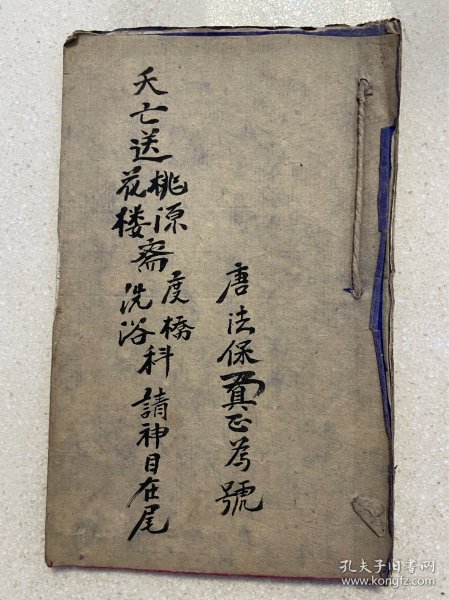 唐法保真正為號
夭亡送桃源花楼斋度橋洗浴科 請神目在尾
孔夫子旧书网
www.kongfz.com